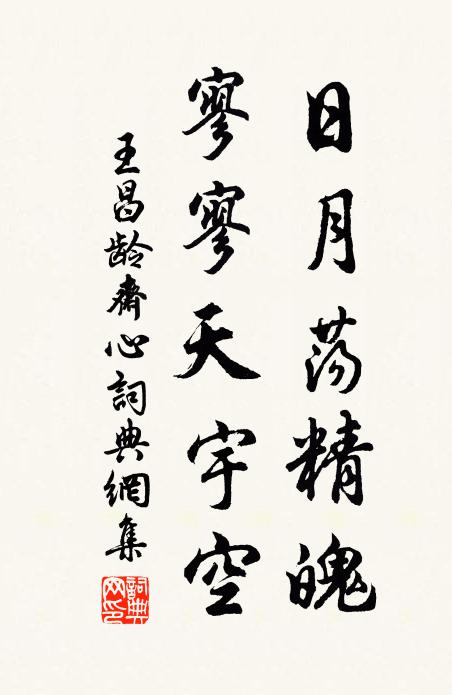 日月荡精魄
寥寥天宇空
王昌龄齋心詞典網集
詞典
网印